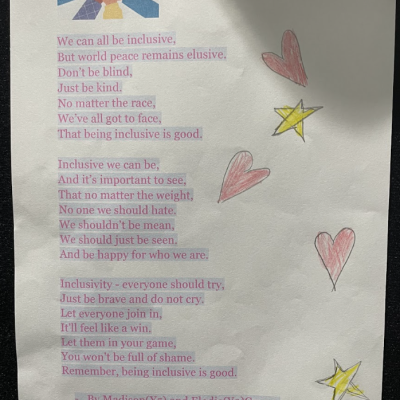 We can all be inclusive,
But world peace remains elusive,
Don't be blind,
Just be kind.
No matter the race,
We've all got to face,
That being inclusive is good.
Inclusive we can be,
And it's important to see,
That no matter the weight,
No one we should hate.
We shouldn't be mean,
We should just be seen.
And be happy for who we are.
Inclusivity - everyone should try,
Just be brave and do not cry.
Let everyone join in,
It'll feel like a win,
Let them in your game,
You won't be full of shame.
Remember, being inclusive is good.
By Madison and